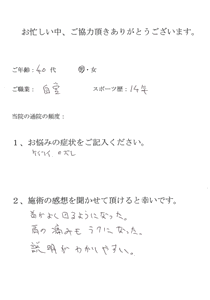 お忙しい中、ご協力頂きありがとうございます。
ご年齢：40 代　男・女
ご職業： 自営　スポーツ歴：14年
当院の通院の頻度：
1、お悩みの症状をご記入ください。
2、施術の感想を聞かせて頂けると幸いです。
首がよく回るようになった。
肩の痛みもラクになった。
説明がわかりやすい。